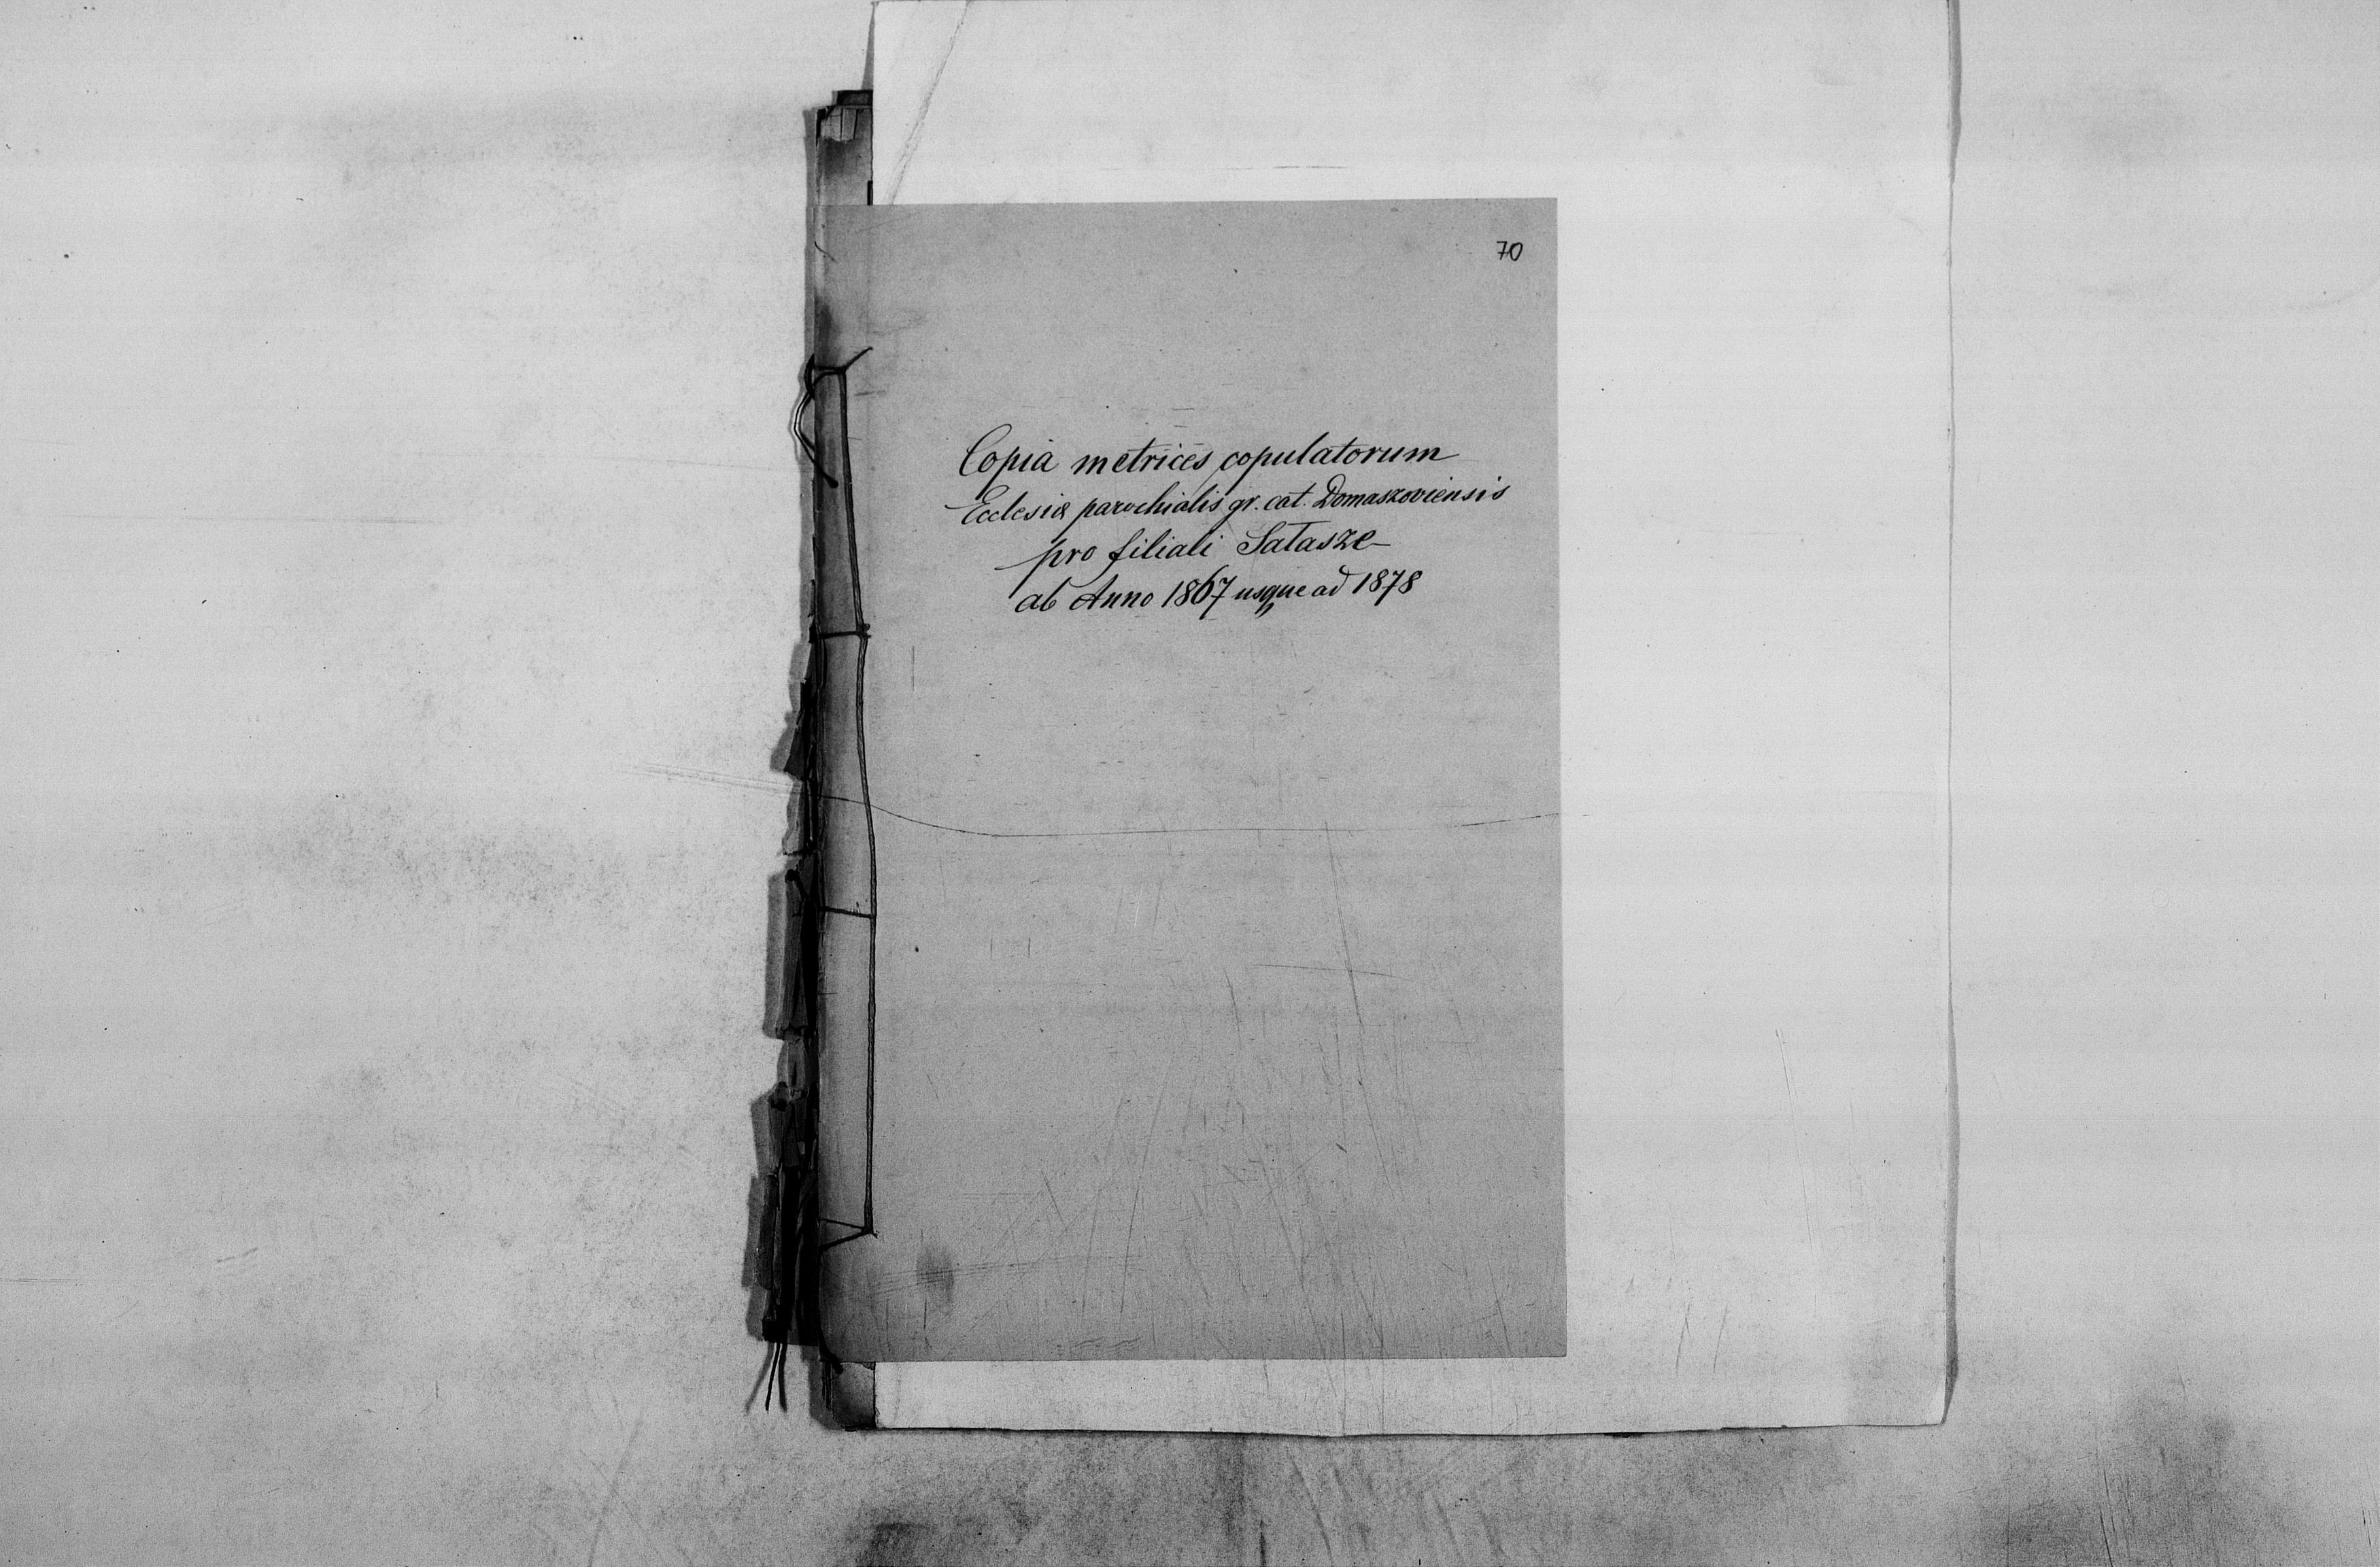 70
Copia metrices copulatorum
Ecclesiæ parochialis gr. cat. Domaszoviensis
pro filiali Sałasze
ab Anno 1867 usque ad 1878